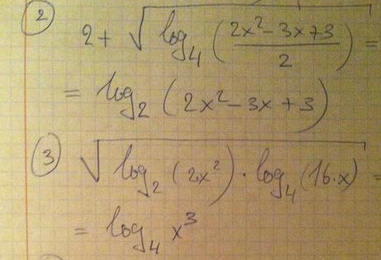 ② 2 + √(log₄((2x² - 3x + 3)/2)) =
= log₂ (2x² - 3x + 3)
③ √(log₂ (2x²) · log₄ (16·x)) =
= log₄ x³